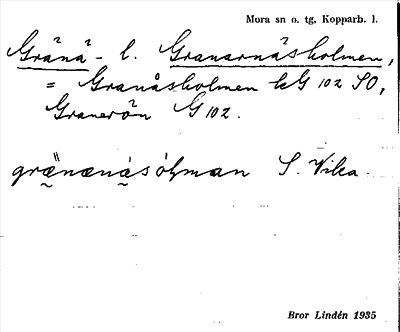 Mora sn o. tg, Kopparb. l.
Gränä- l. Granarnäsholmen,
= Granåsholmen kG 102 SO,
Granerön G 102.
grä̤nænä̤sóɫman S. Vika.
Bror Lindén 1935